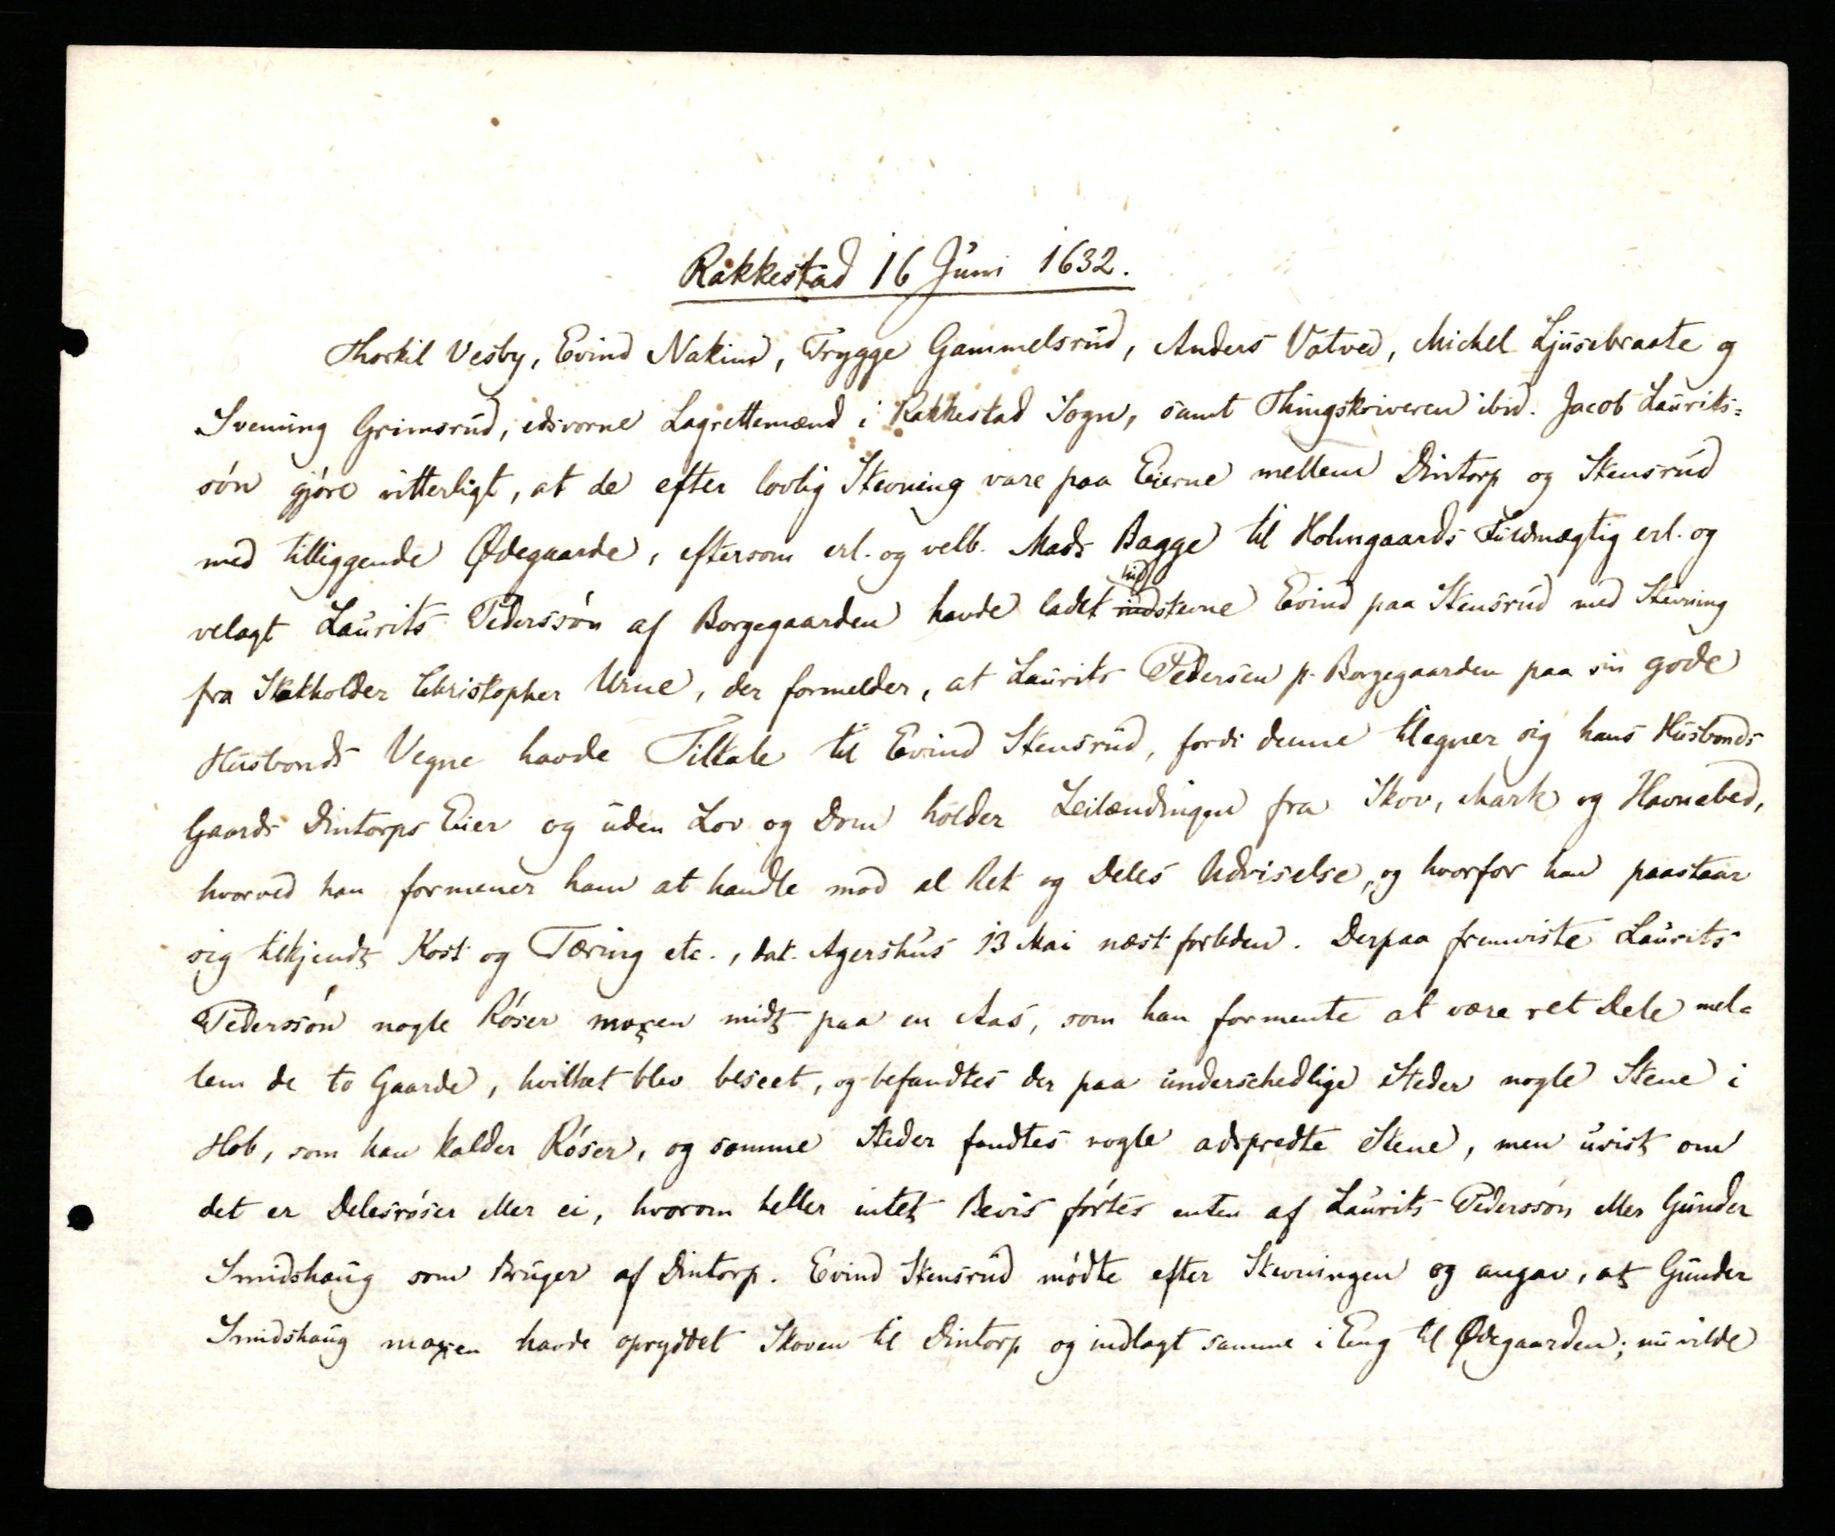 Rakkestad 16 Juni 1632.
Thorkil Vesby, Evind Nakim, Trygge Gammelsrud, Anders Vatved, Michel Ljusebraate og
Svenning Grimsrud, edsvorne Lagrettemænd i Rakkestad Sogn, samt Thingskriveren ibid. Jacob Laurits-
søn gjøre vitterligt, at de efter lovlig Stevning vare paa Eierne mellem Dintorp og Stensrud
med tilliggende Ødegaarde, eftersom erl. og velb. Mads Bagge til Holmgaards Fuldmægtig erl. og
velagt Laurits Pederssøn af Borgegaarden havde ladet hidstevne Evind paa Stensrud med Stevning
fra Statholder Christopher Urne, der formelder, at Laurits Pedersen p. Borgegaarden paa sin gode
Husbonds Vegne havde Tiltale til Evind Stensrud, fordi denne tilegner sig hans Husbonds
Gaards Dintorps Eier og uden Lov og Dom holder Leilændingen fra Skov, Mark og Havnebed,
hvorved han formener ham at handle mod al Ret og Deles Udviselse, og hvorfor han paastaar
sig tilkjendt Kost og Tæring etc., dat. Agershus 13 Mai næst forleden. Derpaa fremviste Laurits
Pederssøn nogle Røser moxen midt paa en Aas, som han formente at være ret Dele mel-
lem de to Gaarde, hvilket blev beseet, og befandtes der paa underschedlige Steder nogle Stene i
Hob, som han kalder Røser, og somme Steder fandtes nogle adspredte Stene, men uvist om
det er Delesrøser eller ei, hvorom heller intet Bevis førtes enten af Laurits Pederssøn eller Gunder
Smidshaug som Bruger af Dintorp. Evind Stensrud mødte efter Stevningen og angav, at Gunder
Smidshaug moxen havde opryddet Skoven til Dintorp og indlagt samme i Eng til Ødegaarden; nu vilde